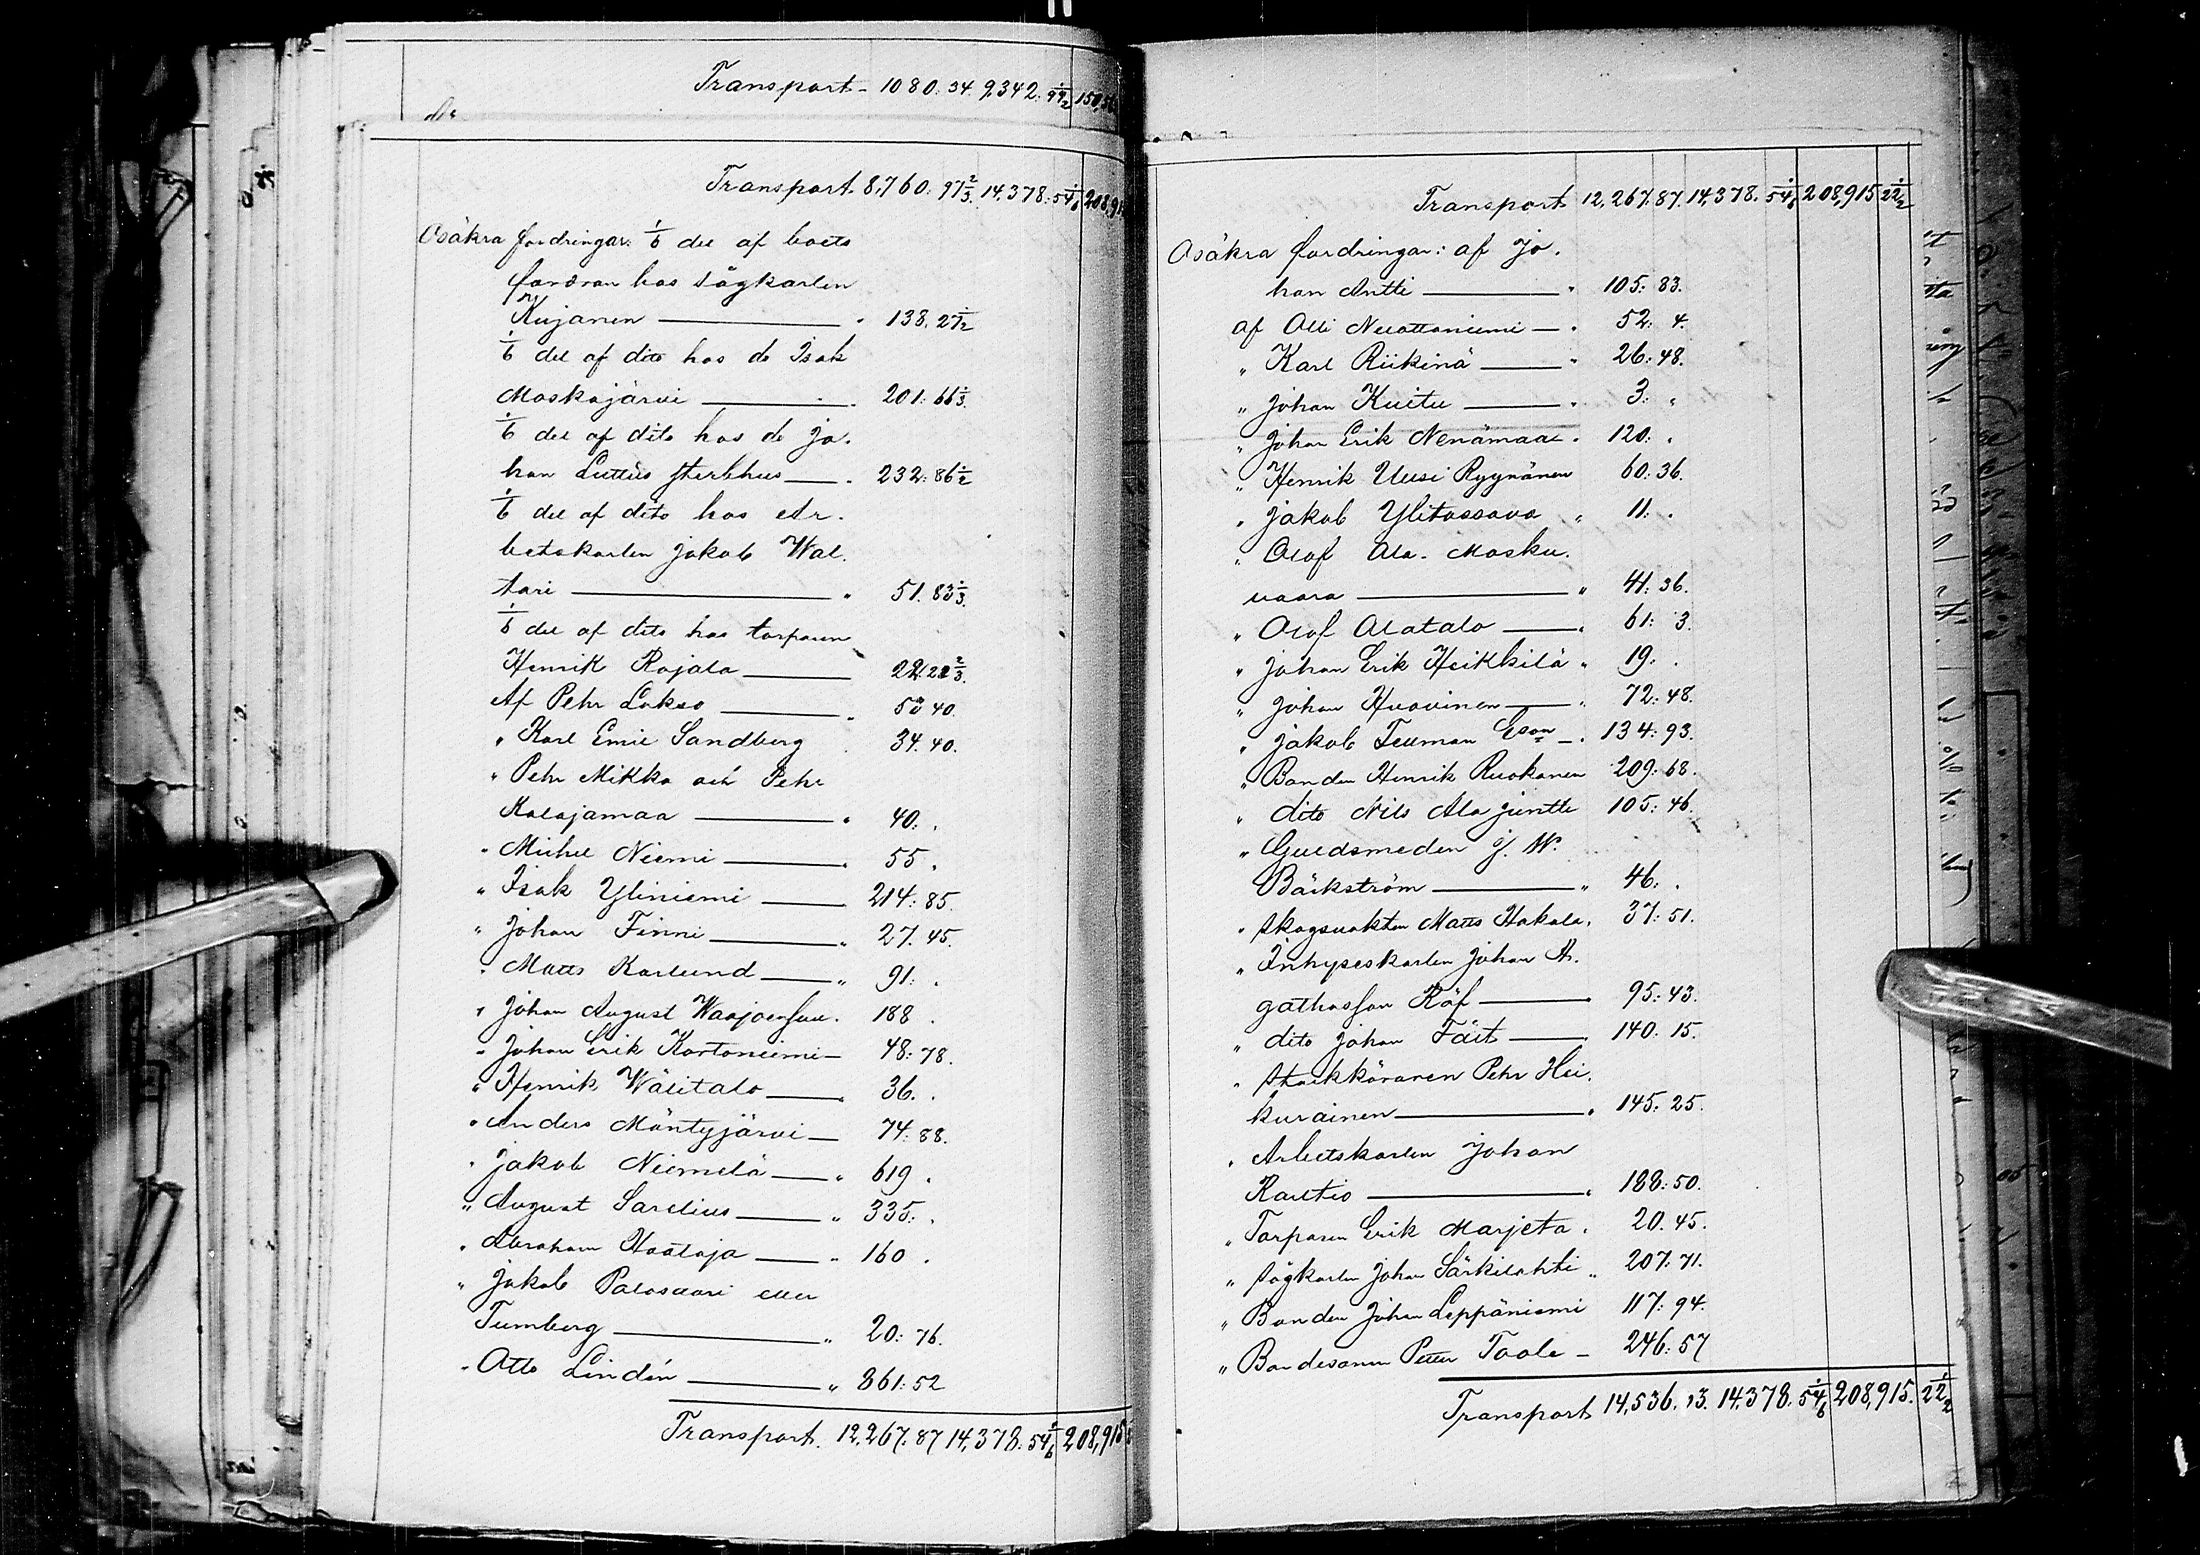 Transport 1080. 34. 9,342. 99 1/2
Transport 8,760: 97 2/3. 14,378: 54 1/6
Osäkra fordringar: 1/6 del af boets
fordran hos sågkarlen
Kujanen — 138. 27 1/2
1/6 del af dito hos do Isak
Moskojärvi — 201: 66 1/3.
1/6 del af dito hos do Jo-
han Luttus sterbhus — 232: 86 1/2
1/6 del af dito hos Ar-
betskarlen Jakob Wal-
tari — 51. 83 1/3.
1/6 del af dito hos torparen
Henrik Rajala —
Af Pehr Lakso — 40.
" Karl Emil Sandberg 34. 40.
" Pehr Mikko och Pehr
Kalajamaa — " 40: .
" Michel Niemi — " 55 .
" Isak Yliniemi — 214: 85.
" Johan Finni — " 27. 45.
" Matts Karlund — " 91: .
" Johan August Waajoensuu . 188 .
" Johan Erik Kortoniemi — 48: 78.
" Henrik Wälitalo — " 36. .
" Anders Mäntyjärvi — 74: 88.
" Jakob Niemelä — " 619 .
" August Sarelius — " 335: .
" Abraham Haataja — " 160 .
" Jakob Palosaari eller
Tumberg — " 20: 76.
" Otto Lindén — " 861: 52
Transport. 12,267: 87 14,378: 54 1/6 208,915
Transport 12,267. 87. 14,378. 54 1/6 208,915 22 1/2
Osäkra fordringar: af Jo-
han Antti — " 105: 83.
af Olli Neuottoniemi — " 52: 4.
" Karl Riikinä — " 26: 48.
" Johan Kuitu — " 3: "
" Johan Erik Nenämaa " 120: "
" Henrik Uusi Ryynänen 60: 36.
" Jakob Ylitassava " 11: .
" Olof Ala-Mosku-
vaara — " 41: 36.
" Olof Alatalo — " 61: 3.
" Johan Erik Heikkilä " 19: .
" Johan Huovinen — " 72: 48.
" Jakob Teuman Eson — " 134: 93.
" Bonden Henrik Ruokanen 209: 68.
" dito Nils Ala juntti 105: 46.
" Guldsmeden J. W.
Bäckström — " 46: .
" skogsvakten Matts Hakala " 37: 51.
" Inhyseskarlen Johan A-
gathasson Räf — " 95: 43.
" dito Johan Fält — 140: 15.
" Stockköraren Pehr Hei-
kurainen — " 145: 25.
" Arbetskarlen Johan
Rautio — " 188: 50.
" Torparen Erik Marjeta " 20. 45.
" sågkarlen Johan Särkilahti " 207: 71.
" Bonden Johan Leppäniemi 117: 94.
" Bondesonen Petter Taala — 246: 57
Transport 14,536. 13. 14,378. 54 1/6 208,915. 22 1/2